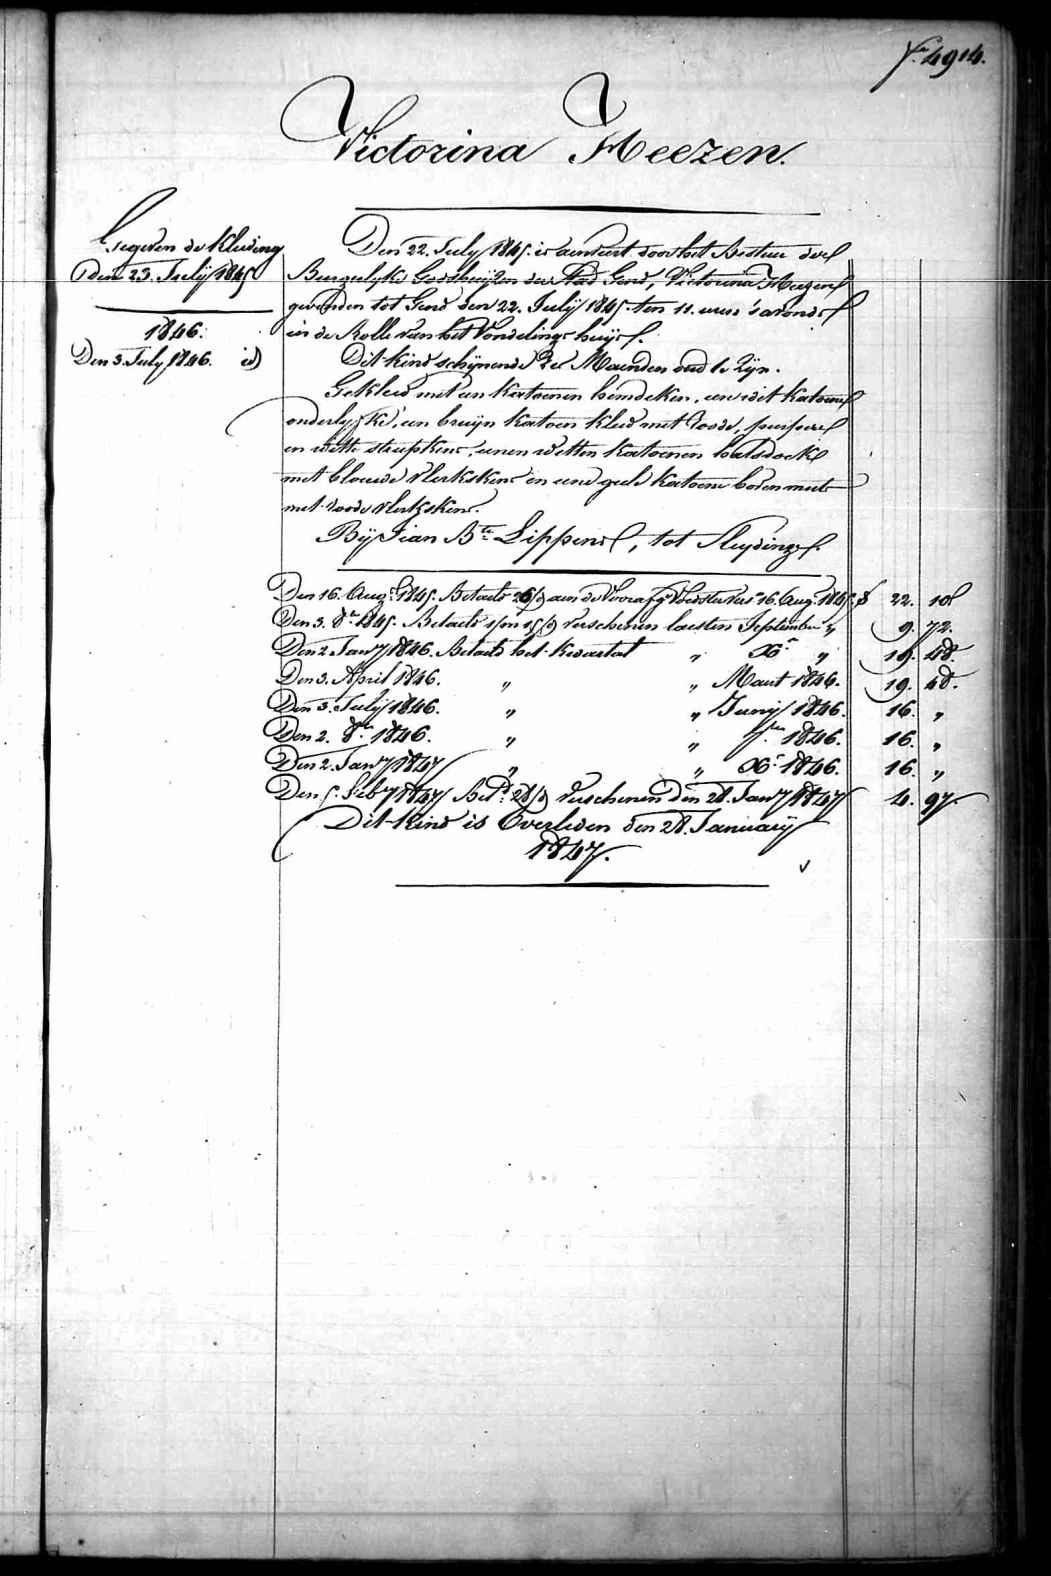 Fo. 4914.
Victorina Heezen.
Gegeven de Kleeding
den 23. July 1845
1846.
Den 3. July 1846. id
Den 22. July 1845. is aenveert door het Bestuer der
Burgelyke Godshuijzen der Stad Gend, Victorina Heezen
gevonden tot Gend den 22. July 1845. ten 11. uren 's avonds
in de Rolle van het Vondelings huijs.
Dit kind schynende Maenden oud te zyn.
Gekleed met een Katoenen hemdeken, een wit Katoene
onderlyfke, een bruyn Katoen kleed met roode, purpere
en witte streepkens, eenen witten Katoenen halsdoek
met blouwe vlekskens en eene geele Katoene boven muts
met roode vlekskens.
By Jean Bte. Lippens, tot Sluydinge.
Den 16. Augt. 1845. Betaeld 26/ aen de Voorafg Voedster Vers. 16. Aug. 1845. 22. 10
Den 3. 8re. 1845. Betaeld verschenen laesten September " 9. 72.
Den 2 Jany 1846. Betaeld het Kwartael " Xr. " 19. 48.
Den 3. April 1846. " " Maert 1846. 19. 48.
Den 3. July 1846. " " Juny 1846. 16. "
Den 2. 8re. 1846. " " 7ber. 1846. 16. "
Den 2. Jany 1847 " " Xr. 1846. 16. "
Den 5. Feby 1847 Betd. 28/ Verschenen Den 28. Jany 1847 4. 97.
Dit Kind is Overleden den 28. January
1847.